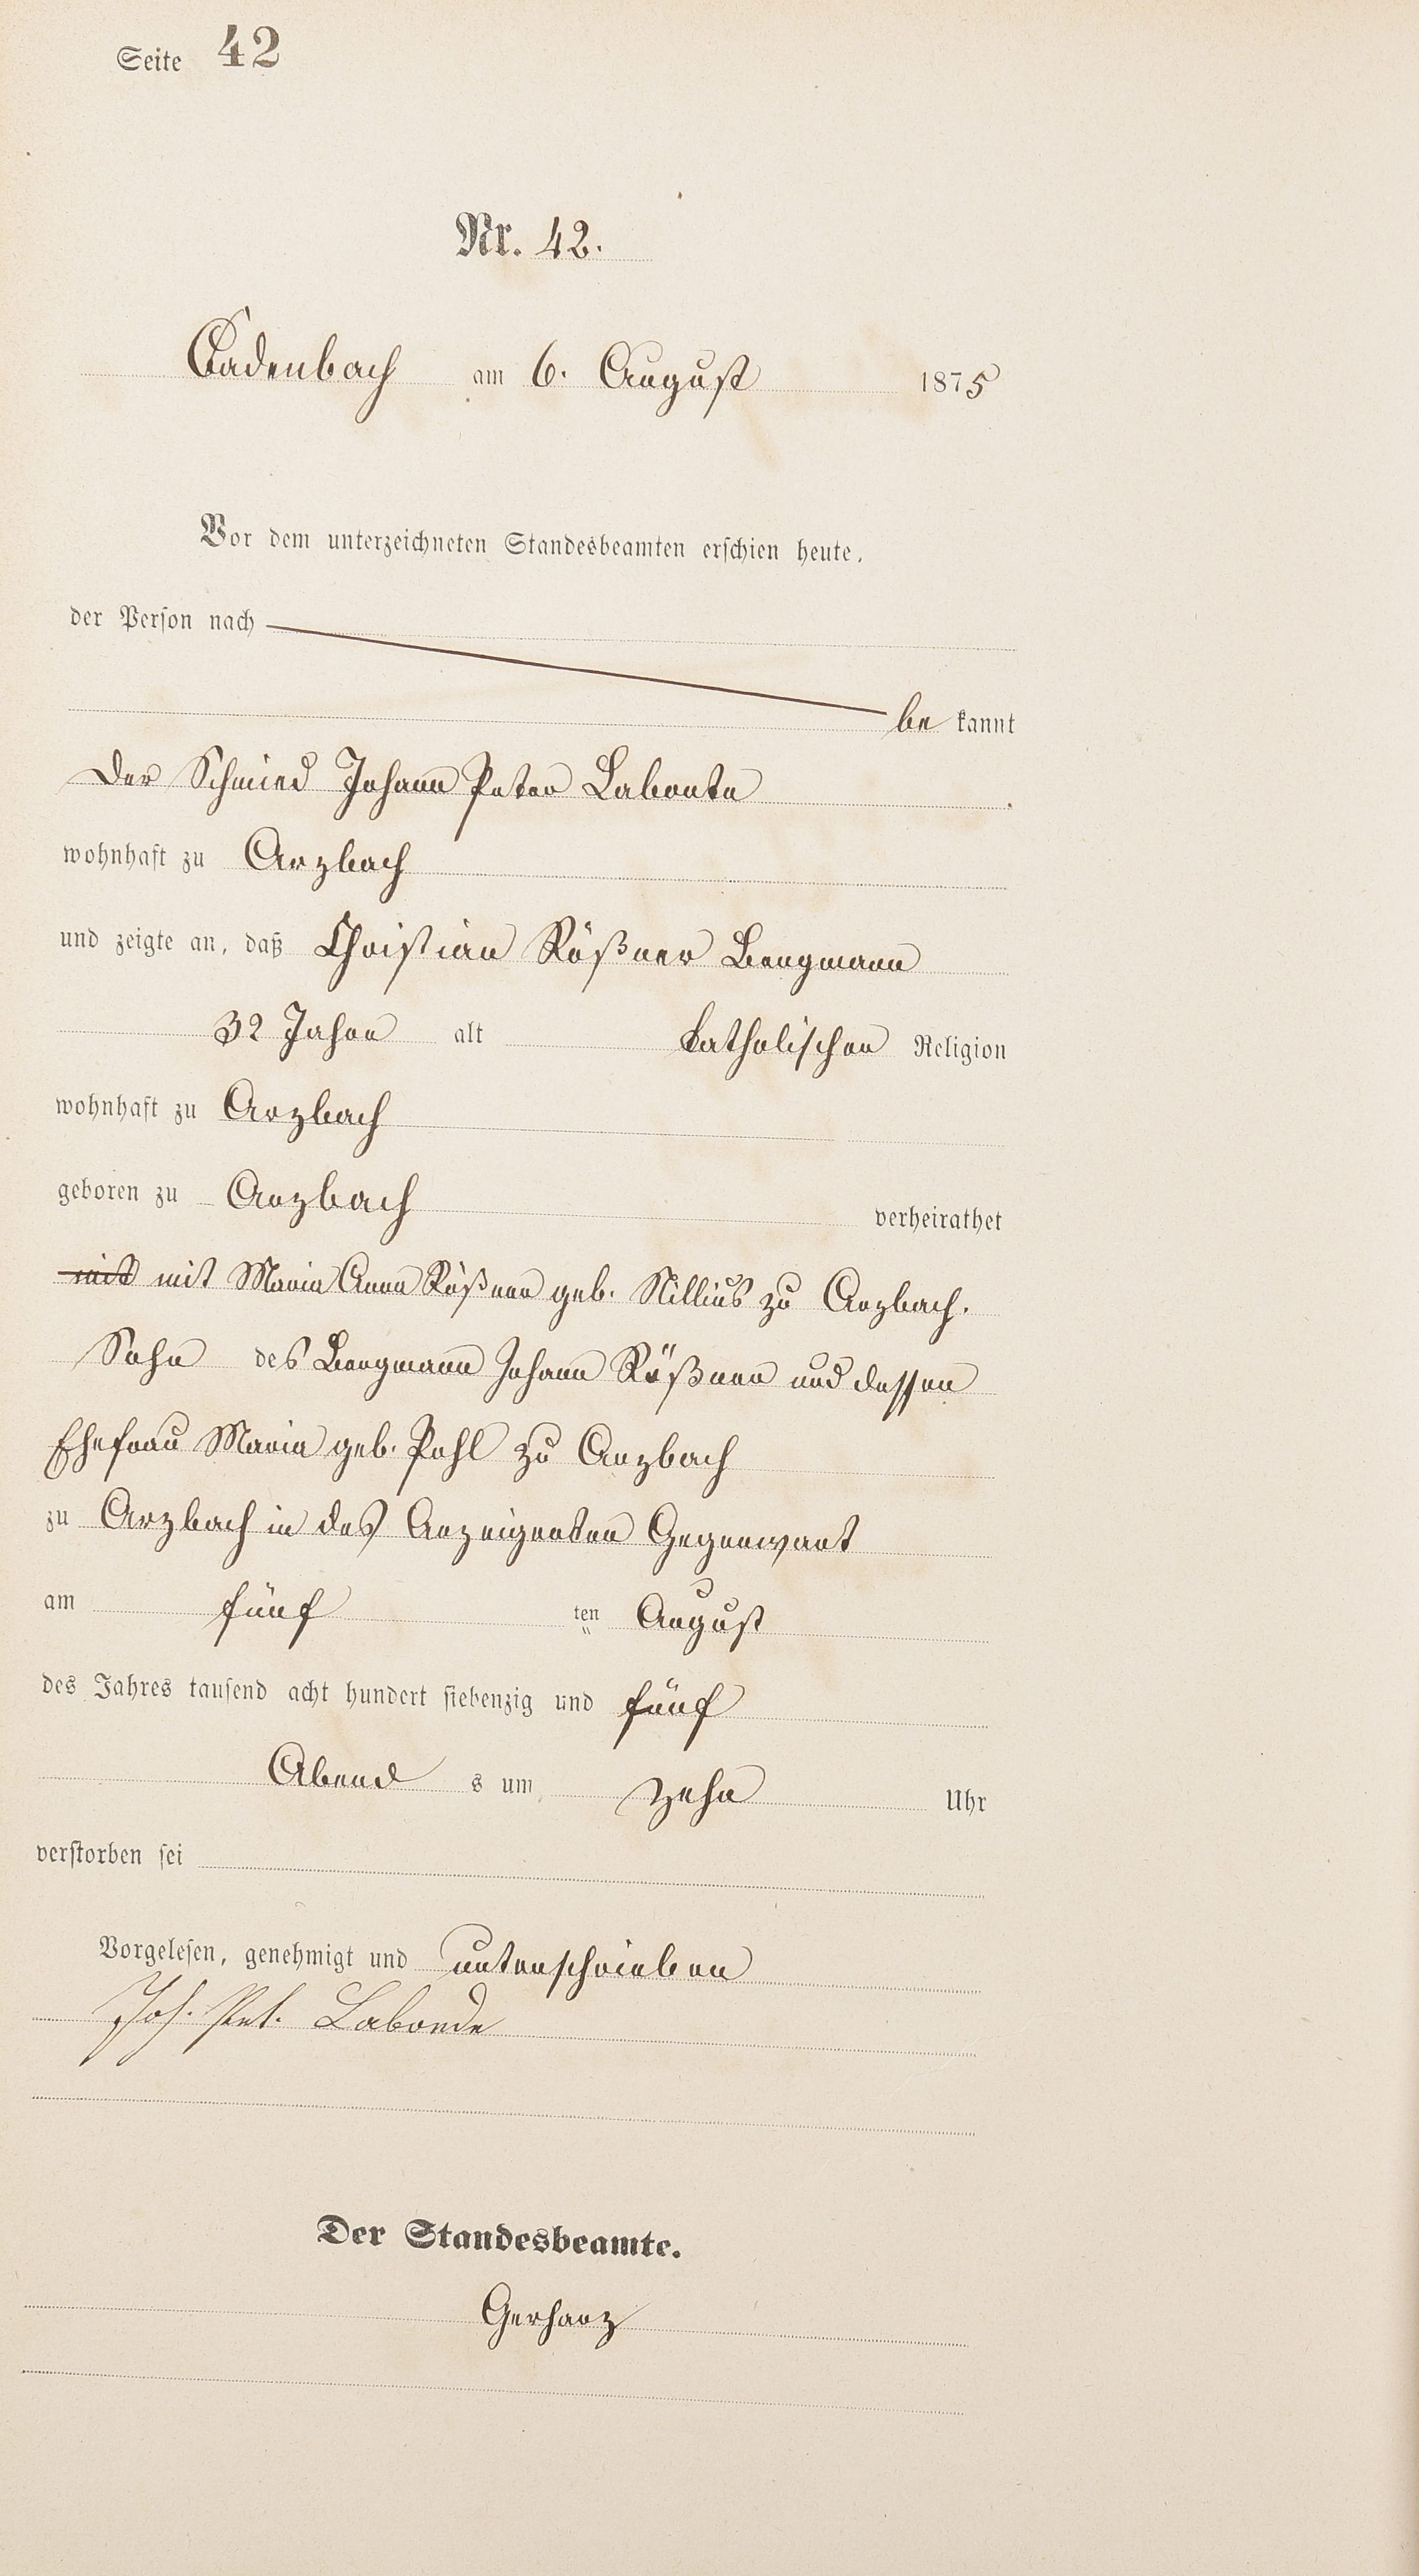 Seite 42
Nr. 42.
Cadenbach am 6. August 1875
Vor dem unterzeichneten Standesbeamten erschien heute,
der Person nach
be kannt
der Schmied Johann Peter Labonte
wohnhaft zu Arzbach
und zeigte an, daß Christian Rößner Bergmann
32 Jahre alt katholischer Religion
wohnhaft zu Arzbach
geboren zu Arzbach verheirathet
mit mit Maria Anna Rößner geb. Nillius zu Arzbach.
Sohn des Bergmann Johann Rößner und dessen
Ehefrau Maria geb. Pohl zu Arzbach
zu Arzbach in des Anzeigenten Gegenwart
am fünf ten August
des Jahres tausend acht hundert siebenzig und fünf
Abend s um zehn Uhr
verstorben sei
Vorgelesen, genehmigt und unterschrieben
Joh. Pet. Labonde
Der Standesbeamte.
Gerharz